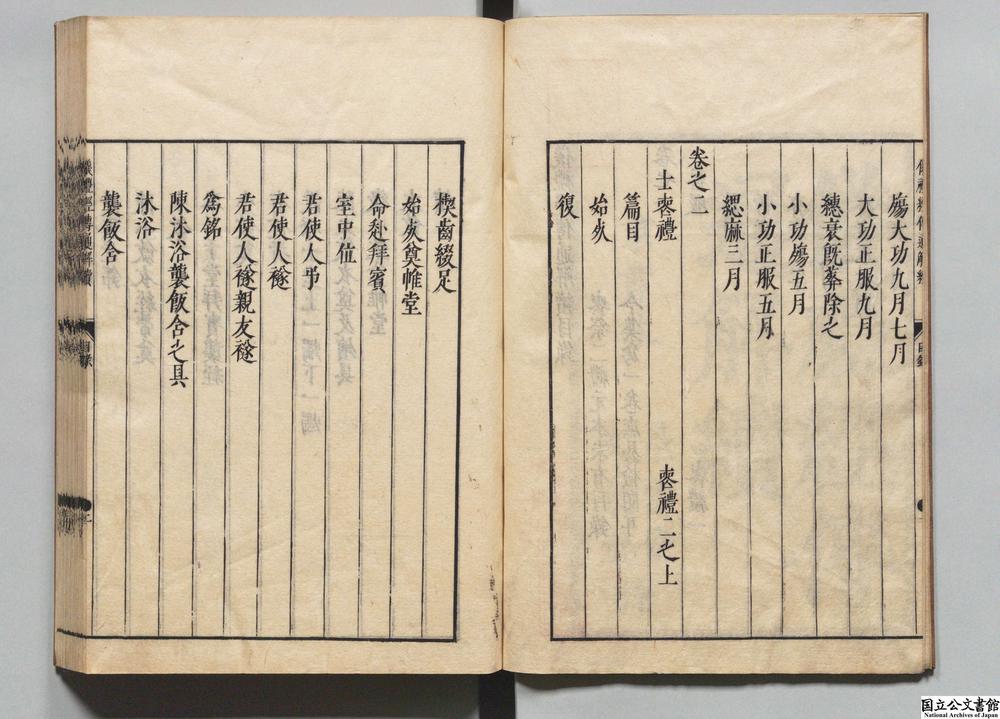 殤大功九月七月
大功正服九月
繐衰既葬除之
小功殤五月
小功正服五月
緦麻三月
卷之二
士喪禮 喪禮二之上
篇目
始死
復
楔齒綴足
始死奠帷堂
命赴拜賓
室中位
君使人弔
君使人襚
君使人襚親友襚
爲銘
陳沐浴襲飯含之具
沐浴
襲飯含
儀禮經傳通解續 目錄 二
国立公文書館
National Archives of Japan